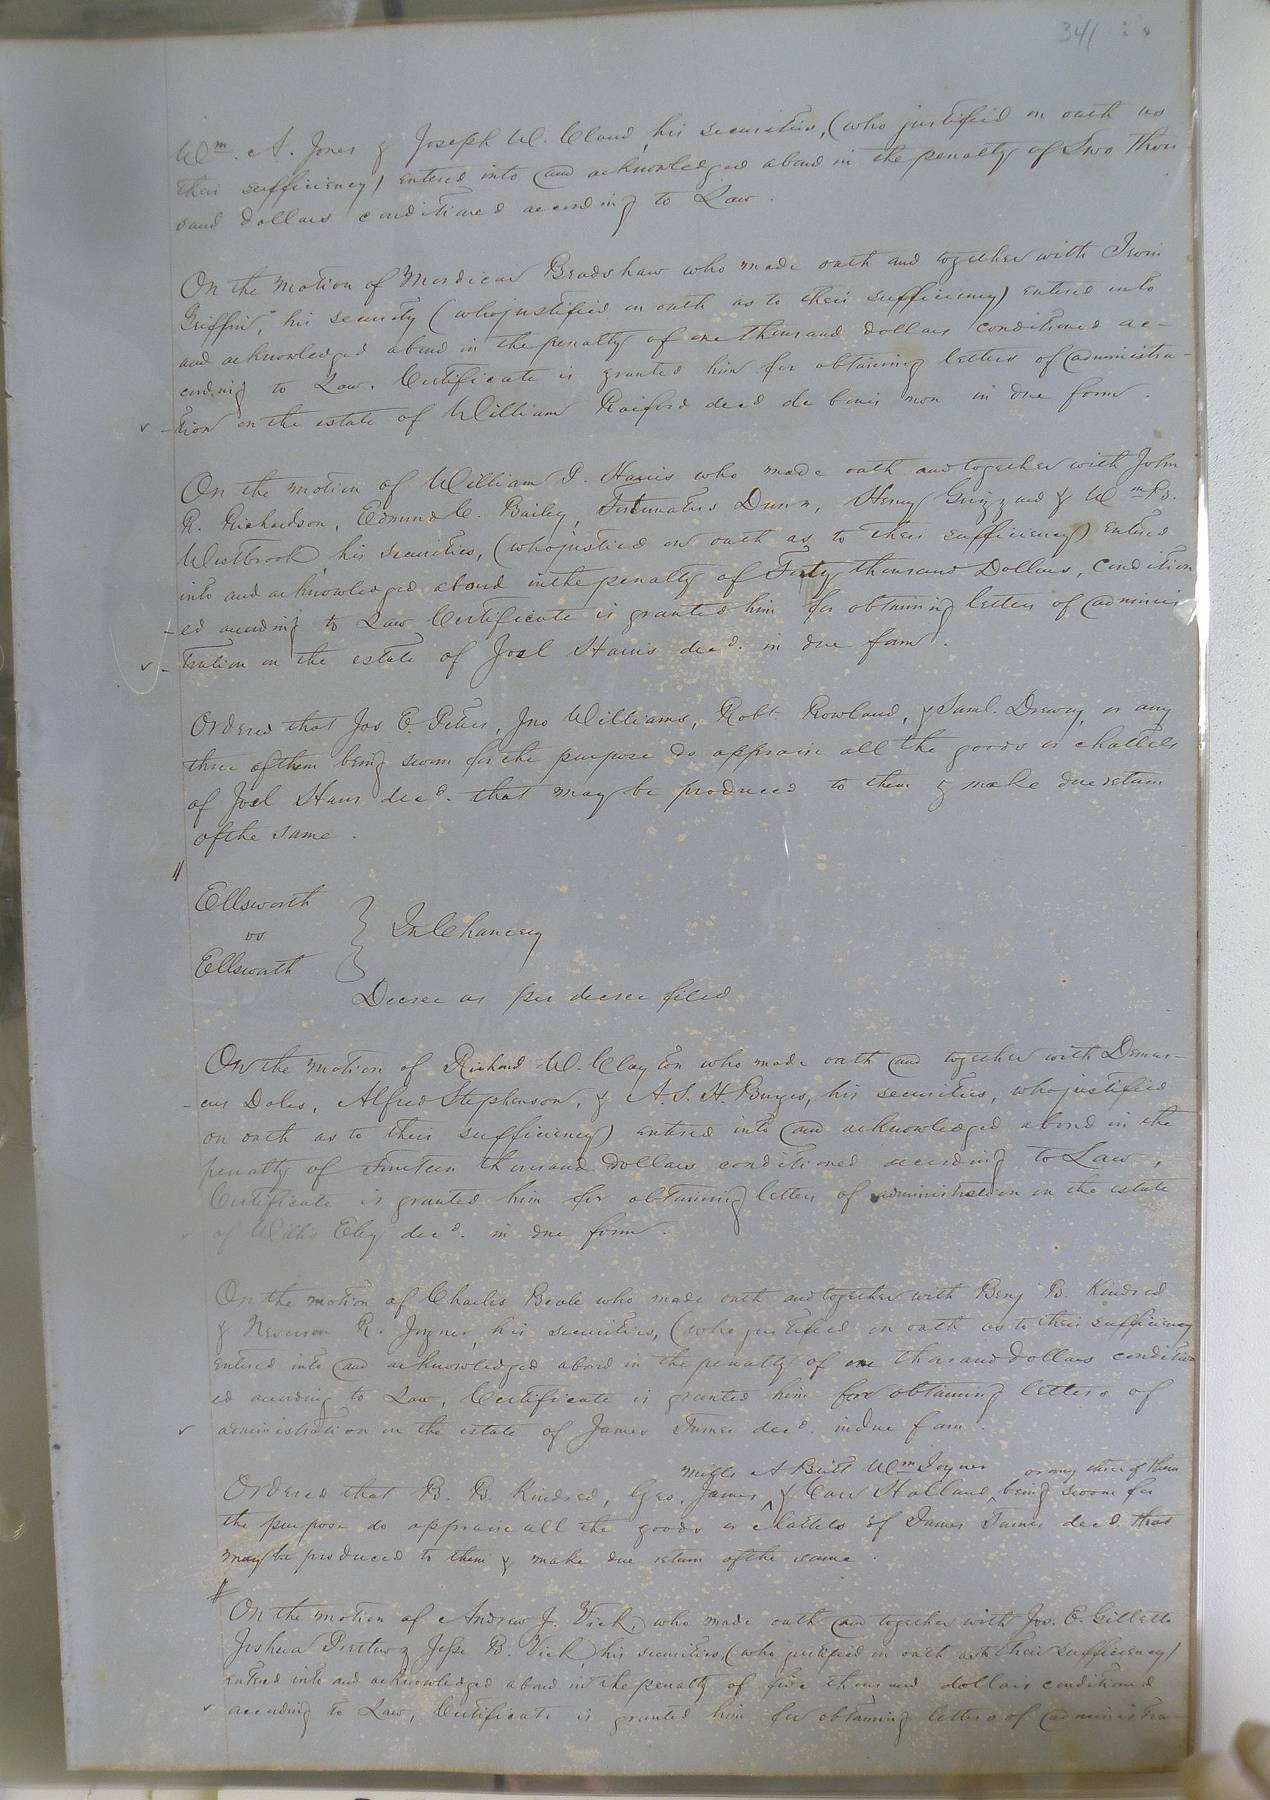 341
Wm. A. Jones & Joseph W. Claud, his securities, (who justified on oath as
their sufficiency) entered into and acknowledged abond in the penalty of Two thou
sand dollars conditioned according to Law.
On the motion of Mordicai Bradshaw who made oath and together with Irvin
Griffin, his security (who justified on oath as to their sufficiency) entered into
and acknowledged abond in the penalty of one thousand dollars conditioned ac-
cording to Law. Certificate is granted him for obtaining letters of administra-
-tion on the estate of William Raiford decd de bonis non in due form.
On the motion of William P. Harris who made oath and together with John
R. Richardson, Edmund C. Bailey, Fortunatus Dunn, Henry Grizzard & Wm B.
Westbrook, his securities, (who justied on oath as to their sufficiency) entered
into and acknowledged abond in the penalty of thousand Dollars, condition
-ed according to Law Certificate is granted him for obtaining letters of adminis
-tration on the estate of Joel Harris decd. in due form.
Ordered that Jos E. Peters, Jno Williams, Robt. Rowland, & Saml. Drewry, or any
three of them being sworn for the purpose do appraise all the goods or chattels
of Joel Harris decd. that may be produced to them & make due return
of the same.
Ellsworth
vs In Chancery
Ellsworth
Decree as per decree filed
On the motion of Richard W. Clayton who made oath and together with
Doles, Alfred Stephenson, & A. S. H. Burges, his securities, who justified
on oath as to their sufficiency) entered into and acknowledged abond in the
penalty of thousand dollars conditioned according to Law,
Certificate is granted him for obtaining letters of administration on the estate
of Eley decd. in due form.
On the motion of Charles Beale who made oath and together with Benj B. Kindred
& R. Joyner, his securities, (who justified on oath as to their sufficiency
entered into and acknowledged abond in the penalty of one thousand dollars condition
ed according to Law, Certificate is granted him for obtaining letters of
administration on the estate of James Turner decd. in due form.
Mills A Britt Wm Joyner or any three of them
Ordered that B. B. Kindred, Geo. James, & Carr Holland, being sworn for
the purpose do appraise all the goods or chattels of James Turner decd. that
may be produced to them & make due return of the same.
On the motion of Andrew J. Vick, who made oath and together with Jos. E. Gillette
Joshua Pretlow & Jesse B. Vick, his securities, (who justified on oath as to their sufficiency)
entered into and acknowledged abond in the penalty of five thousand dollars conditioned
according to Law, Certificate is granted him for obtaining letters of administra-